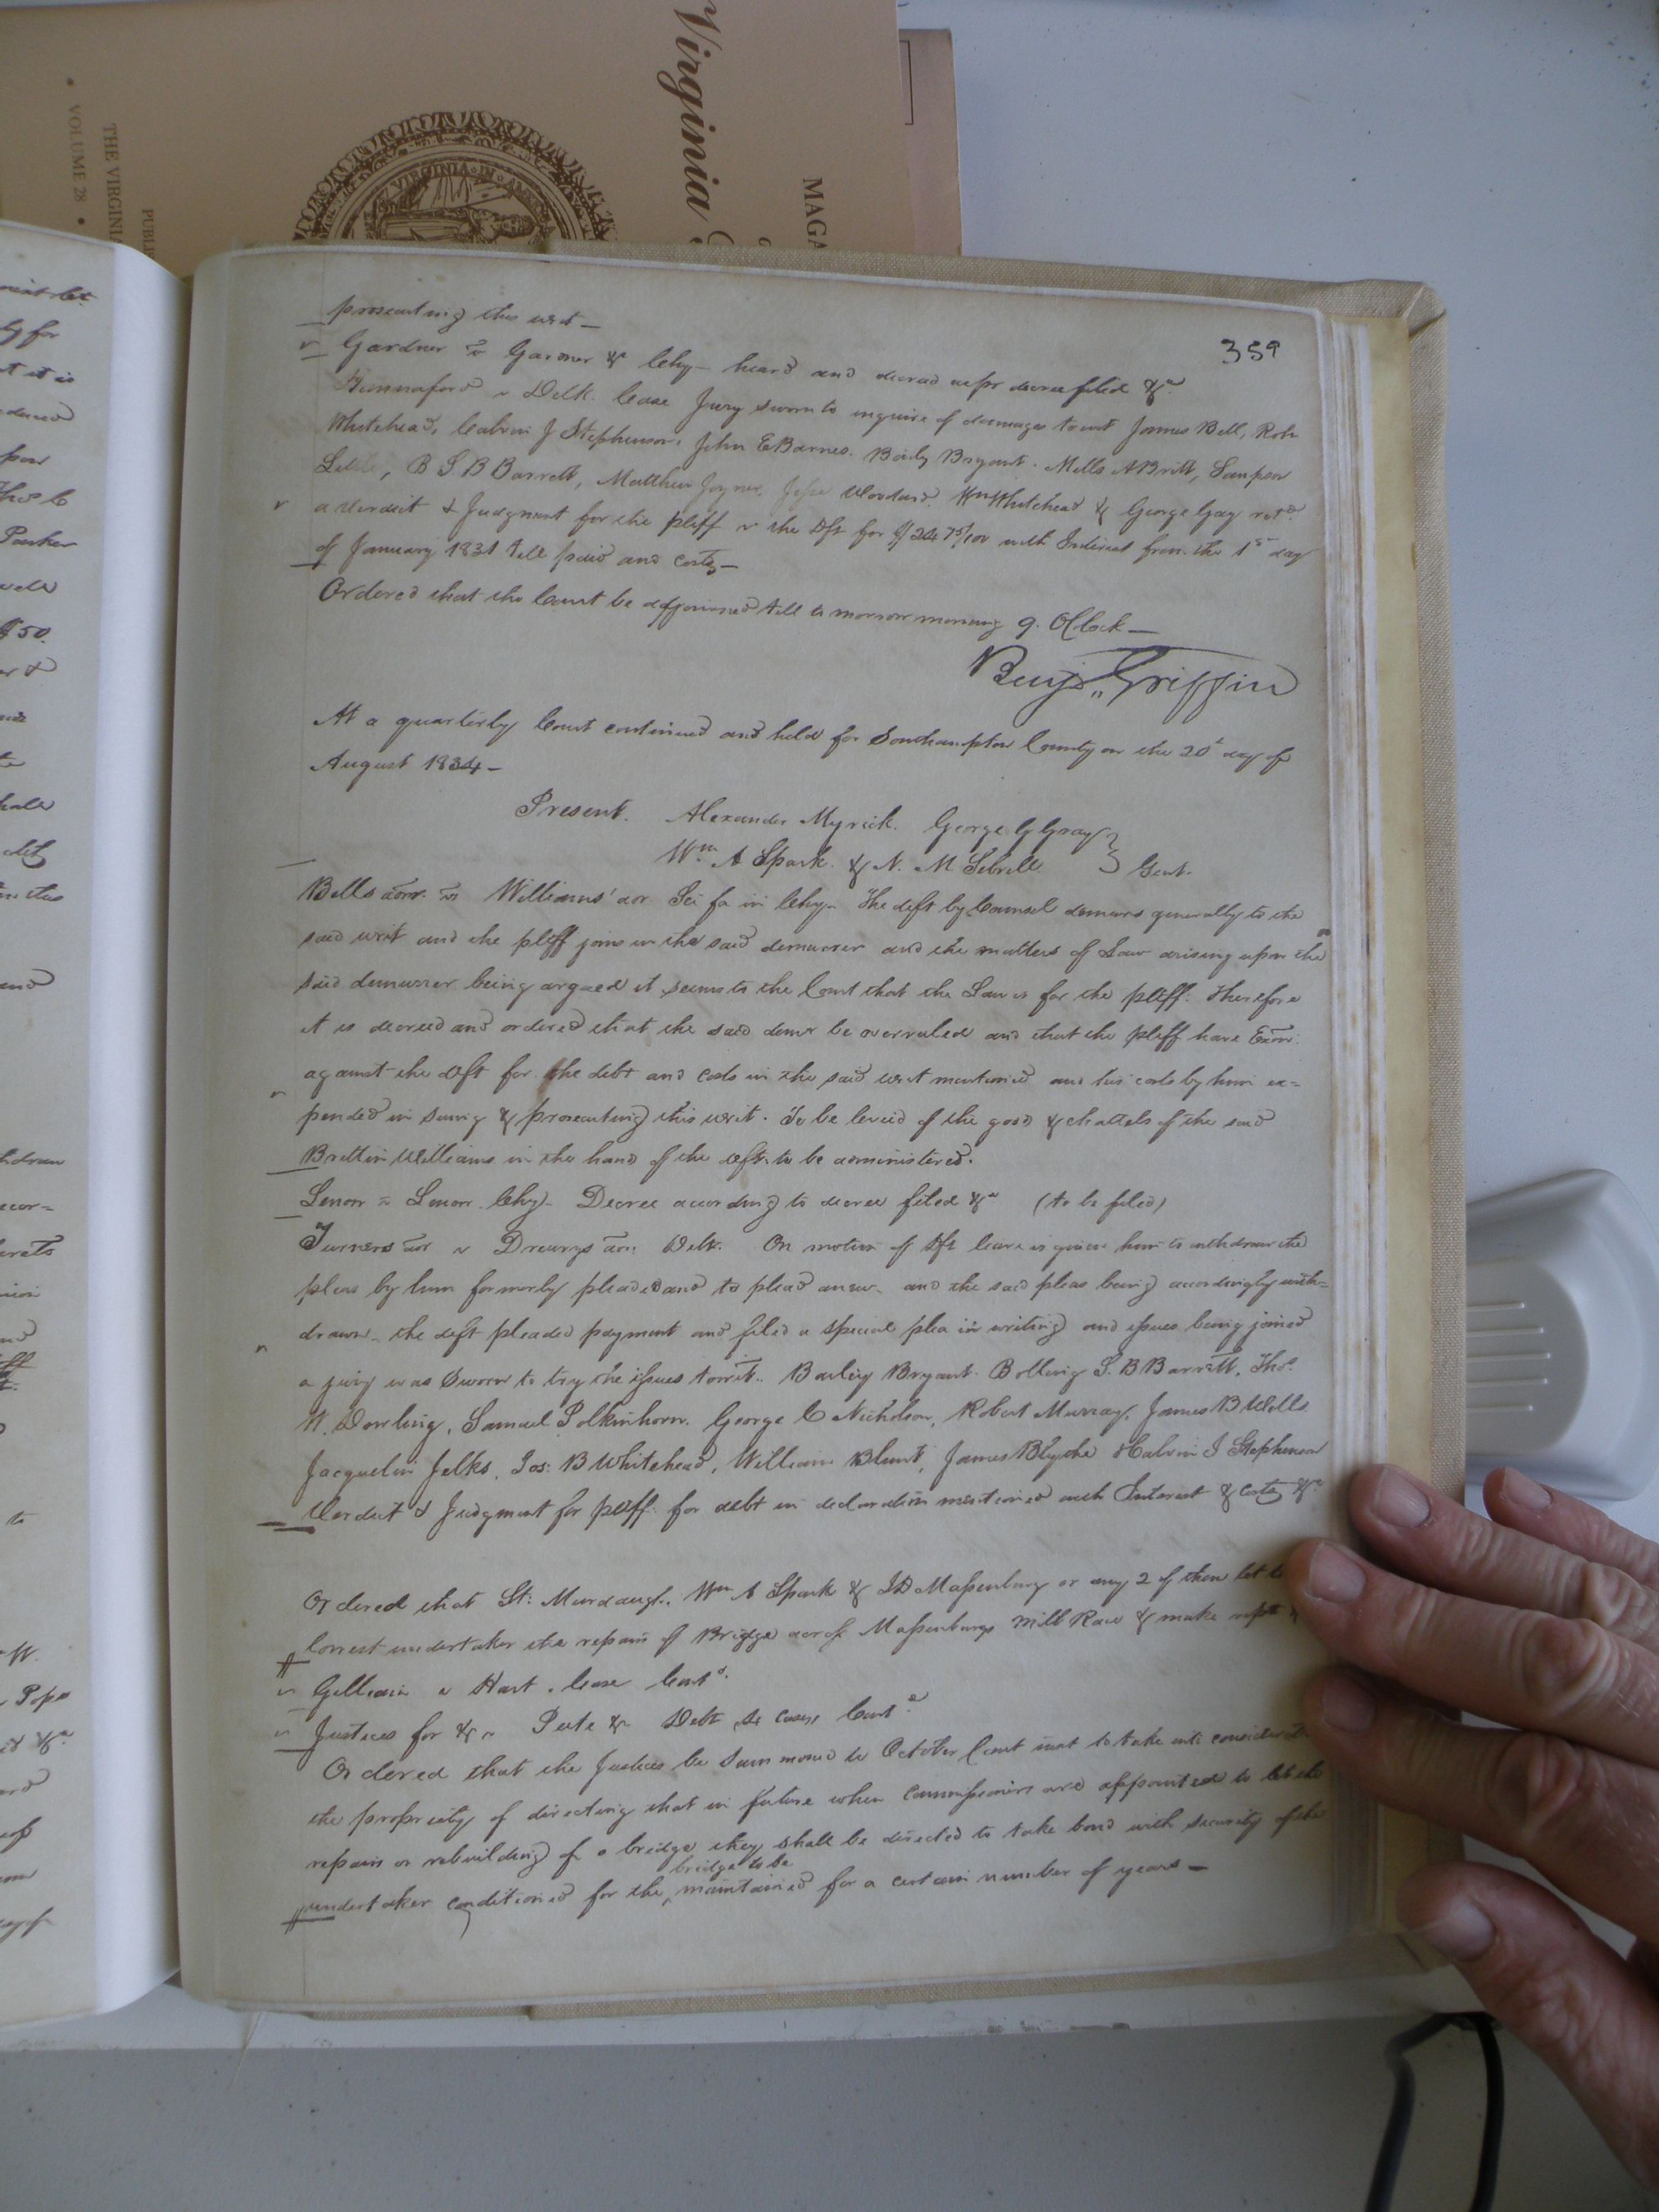 Virginia
MAGA
THE VIRGINIA
VOLUME 28
PUBLI
VIRGINIA IN
359
prosecuting this writ —
Gardner vs Gardner &c Chy — heard and decreed as pr decree filed &c
Hunnaford v Delk. Case Jury sworn to inquire of damages towit James Bell, Rob
Whitehead, Calvin J Stephenson, John E Barnes. Baily Bryant. Mills A Britt, Sampson
Little, B S B Barrett, Matthew Joyner, Jesse Woodard, Wm Whitehead & George Gay retd
a verdict & Judgment for the pltff v the dft for $24 75/100 with Interest from the 1st day
of January 1831 till paid and costs —
Ordered that the Court be adjourned till to morrow morning 9. OClock —
Benja Griffin
At a quarterly Court continued and held for Southampton County on the 20t day of
August 1834 —
Present. Alexander Myrick. George G Gray }
Wm A Spark. & N. M Sebrell } Gent.
Bells admr. vs Williams' ador Sci fa in Chy — The deft by Counsel demurs generally to the
said writ and the pltff joins in the said demurrer and the matters of Law arising upon the
said demurrer being argued it seems to the Court that the Law is for the pltff. Therefore
it is decreed and ordered that the said demr be overruled and that the pltff have Exon.
against the dft for the debt and costs in the said writ mentioned and his costs by him ex=
pended in suing & prosecuting this writ. To be levied of the good & chattels of the said
Brittin Williams in the hand of the dft. to be administered.
Lenow vs Lenow. Chy — Decree according to decree filed &c (to be filed)
Turners ador v Drewrys adm. Debt. On motion of dft leave is given him to withdraw the
pleas by him formerly pleaded and to plead anew — and the said pleas being accordingly with=
drawn — the deft pleaded payment and filed a special plea in writing and issues being joined
a jury was sworn to try the issues towit.. Bailey Bryant. Bolling S. B Barrett, Thos.
W. Dowling, Samuel Polkinhorn. George C Nicholson, Robert Murray, James B Wells
Jacquelin Jelks, Jos: B Whitehead, William Blunt, James Blythe & Calvin J Stephenson
Verdict & Judgment for pltff. for debt in declaration mentioned with Interest & costs &c
Ordered that St: Murdaugh, Wm A Spark & J D Massenburg or any 2 of them let to
lowest undertaker the repair of Bridge across Massenburgs mill Race & make rept
Gilliam v Hart. Case Contd.
Justices for &c v Pete &c Debt Se Case, Contd
Ordered that the Justices be summoned to October Court next to take into considerat
the propriety of directing that in future when Commissioners are appointed to let the
repair or rebuilding of a bridge they shall be directed to take bond with security of the
bridge to be
undertaker conditioned for the maintained for a certain number of years —